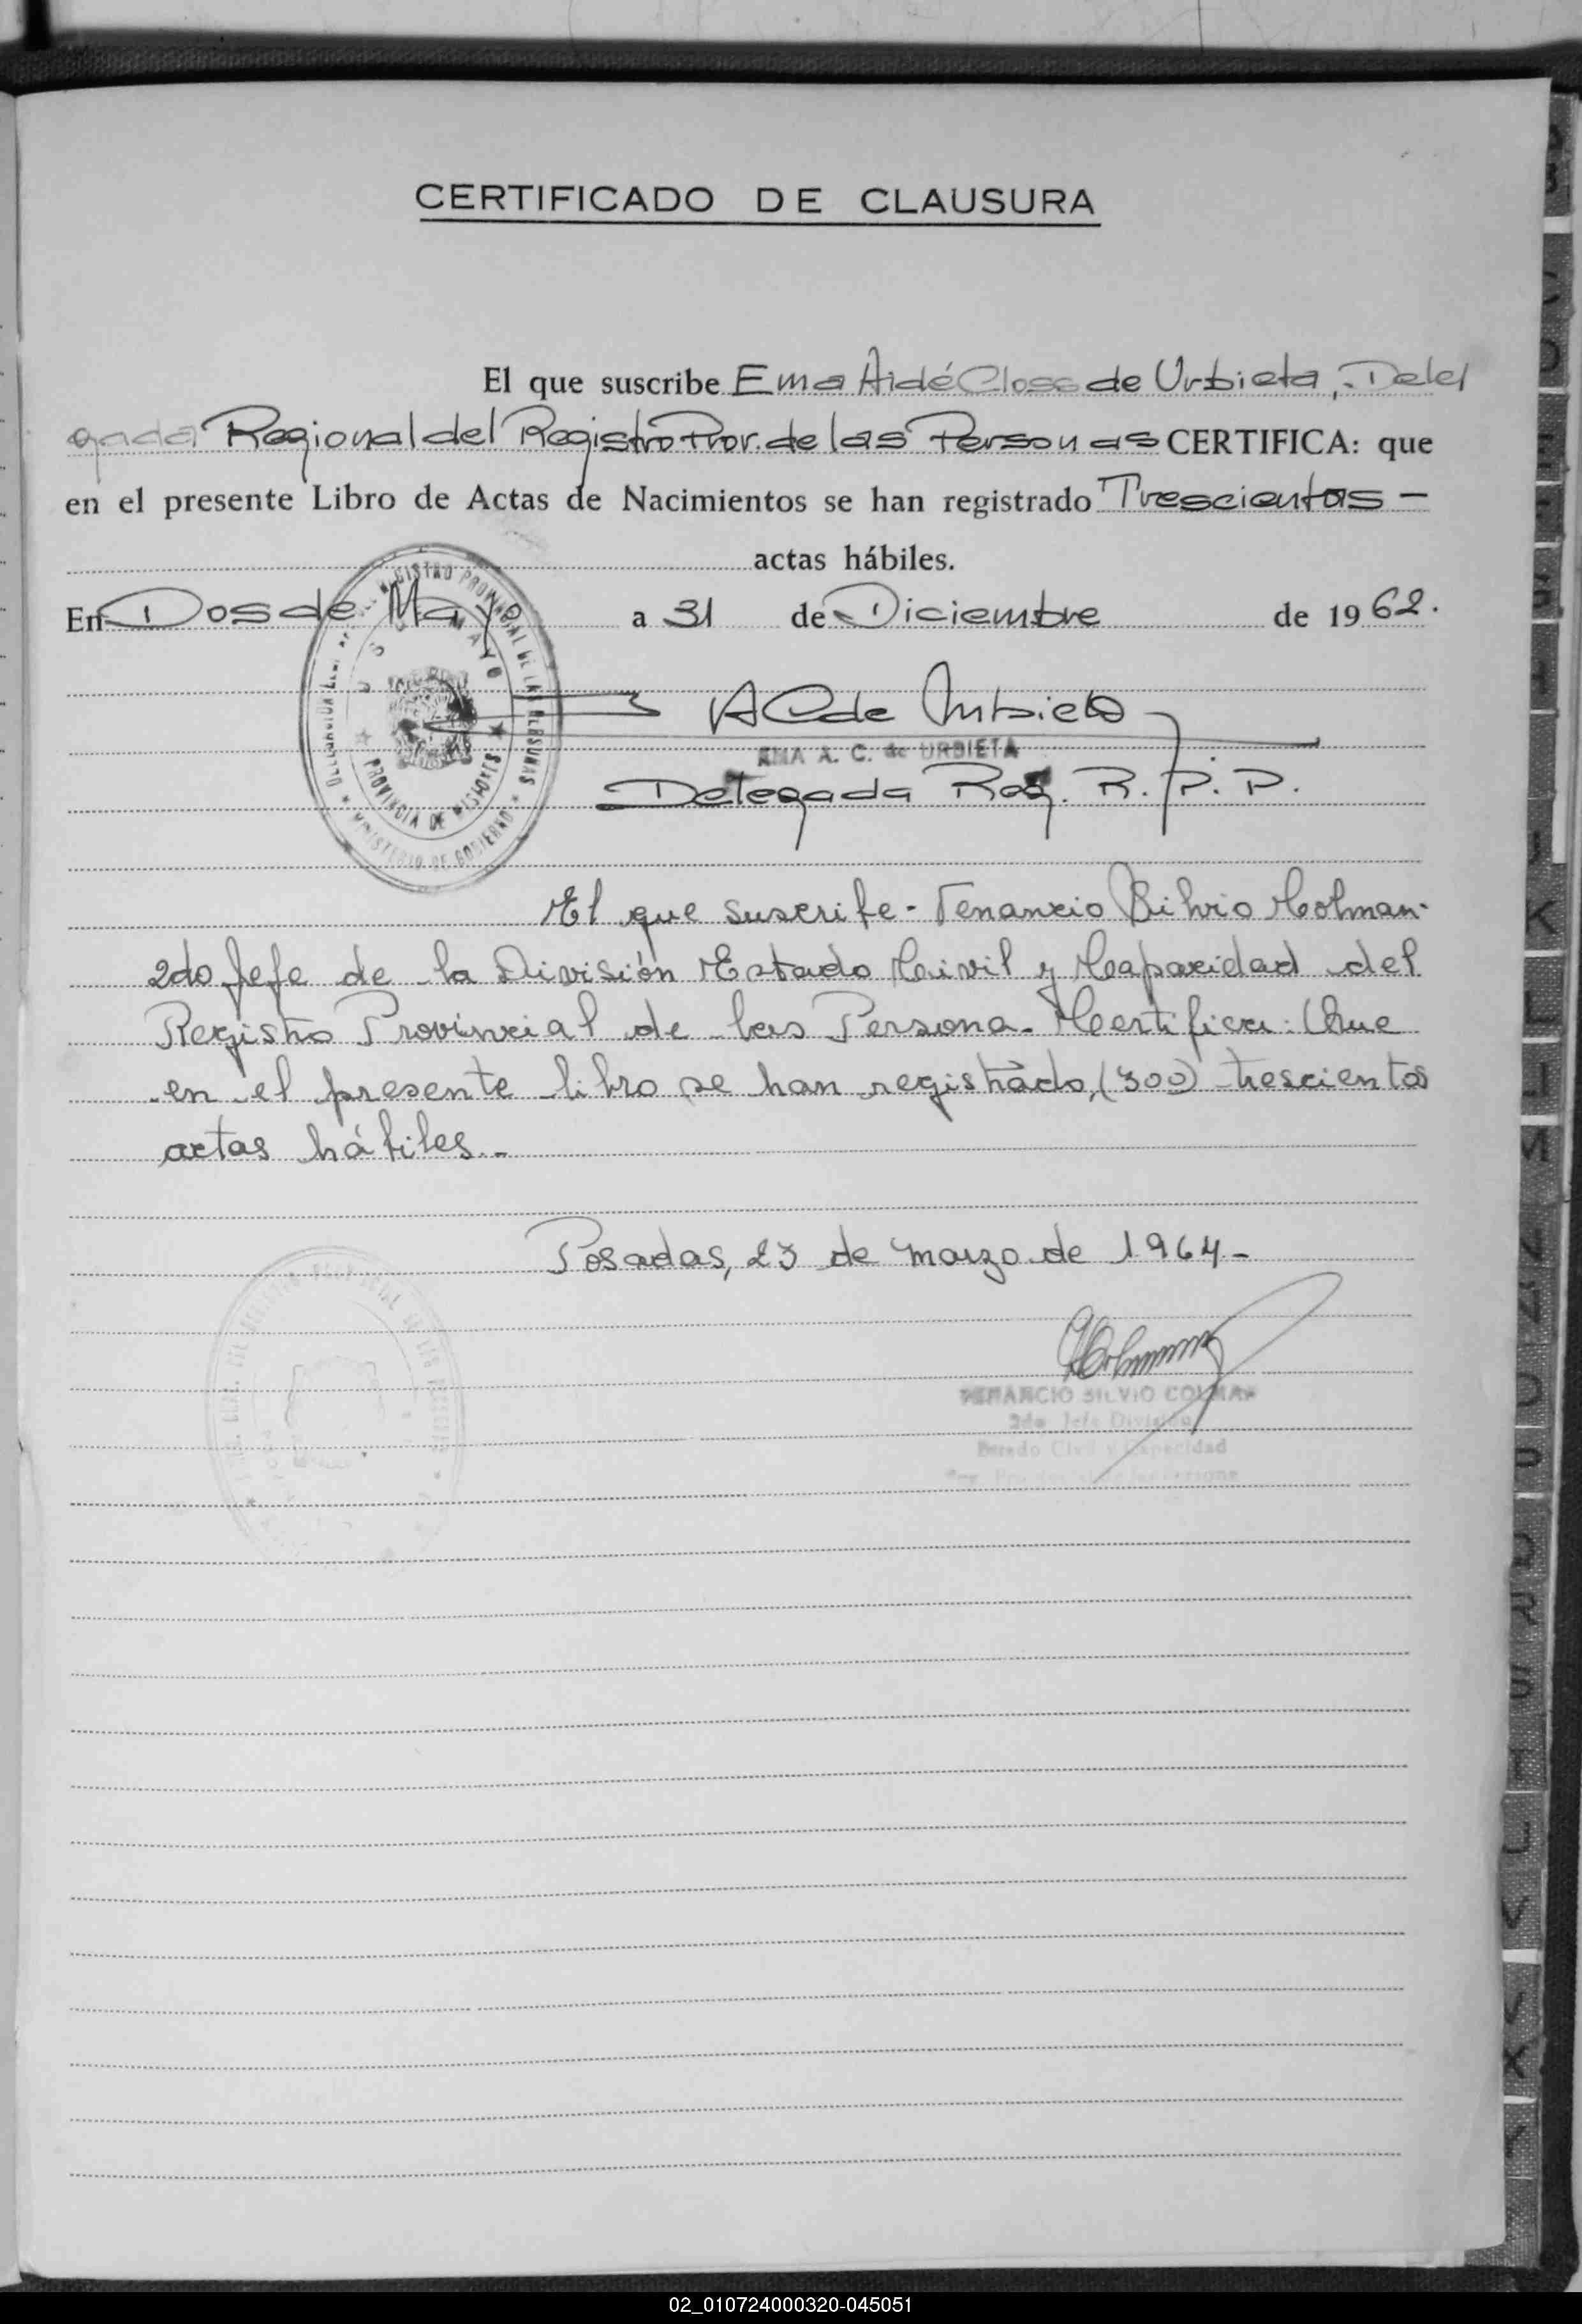 CERTIFICADO DE CLAUSURA
El que suscribe Ema Aidé Closs de Urbieta, Dele
gada Regional del Registro Prov. de las Personas CERTIFICA: que
en el presente Libro de Actas de Nacimientos se han registrado Trescientas —
actas hábiles.
En Dos de Mayo a 31 de Diciembre de 1962.
A C de Urbieta
EMA A. C. de URBIETA
Delegada Reg. R. P. P.
REGISTRO PROVINCIAL DE LAS PERSONAS
DOS DE MAYO
PROVINCIA DE MISIONES
MINISTERIO DE GOBIERNO
El que suscribe - Venancio Silvio Colman -
2do Jefe de la División Estado Civil y Capacidad del
Registro Provincial de las Persona - Certifica: Que
en el presente libro se han registrado, (300) trescientas
actas hábiles. -
Posadas, 23 de marzo de 1964 -
VENANCIO SILVIO COLMAN
2do Jefe División
Estado Civil y Capacidad
K
L
M
02_010724000320-045051